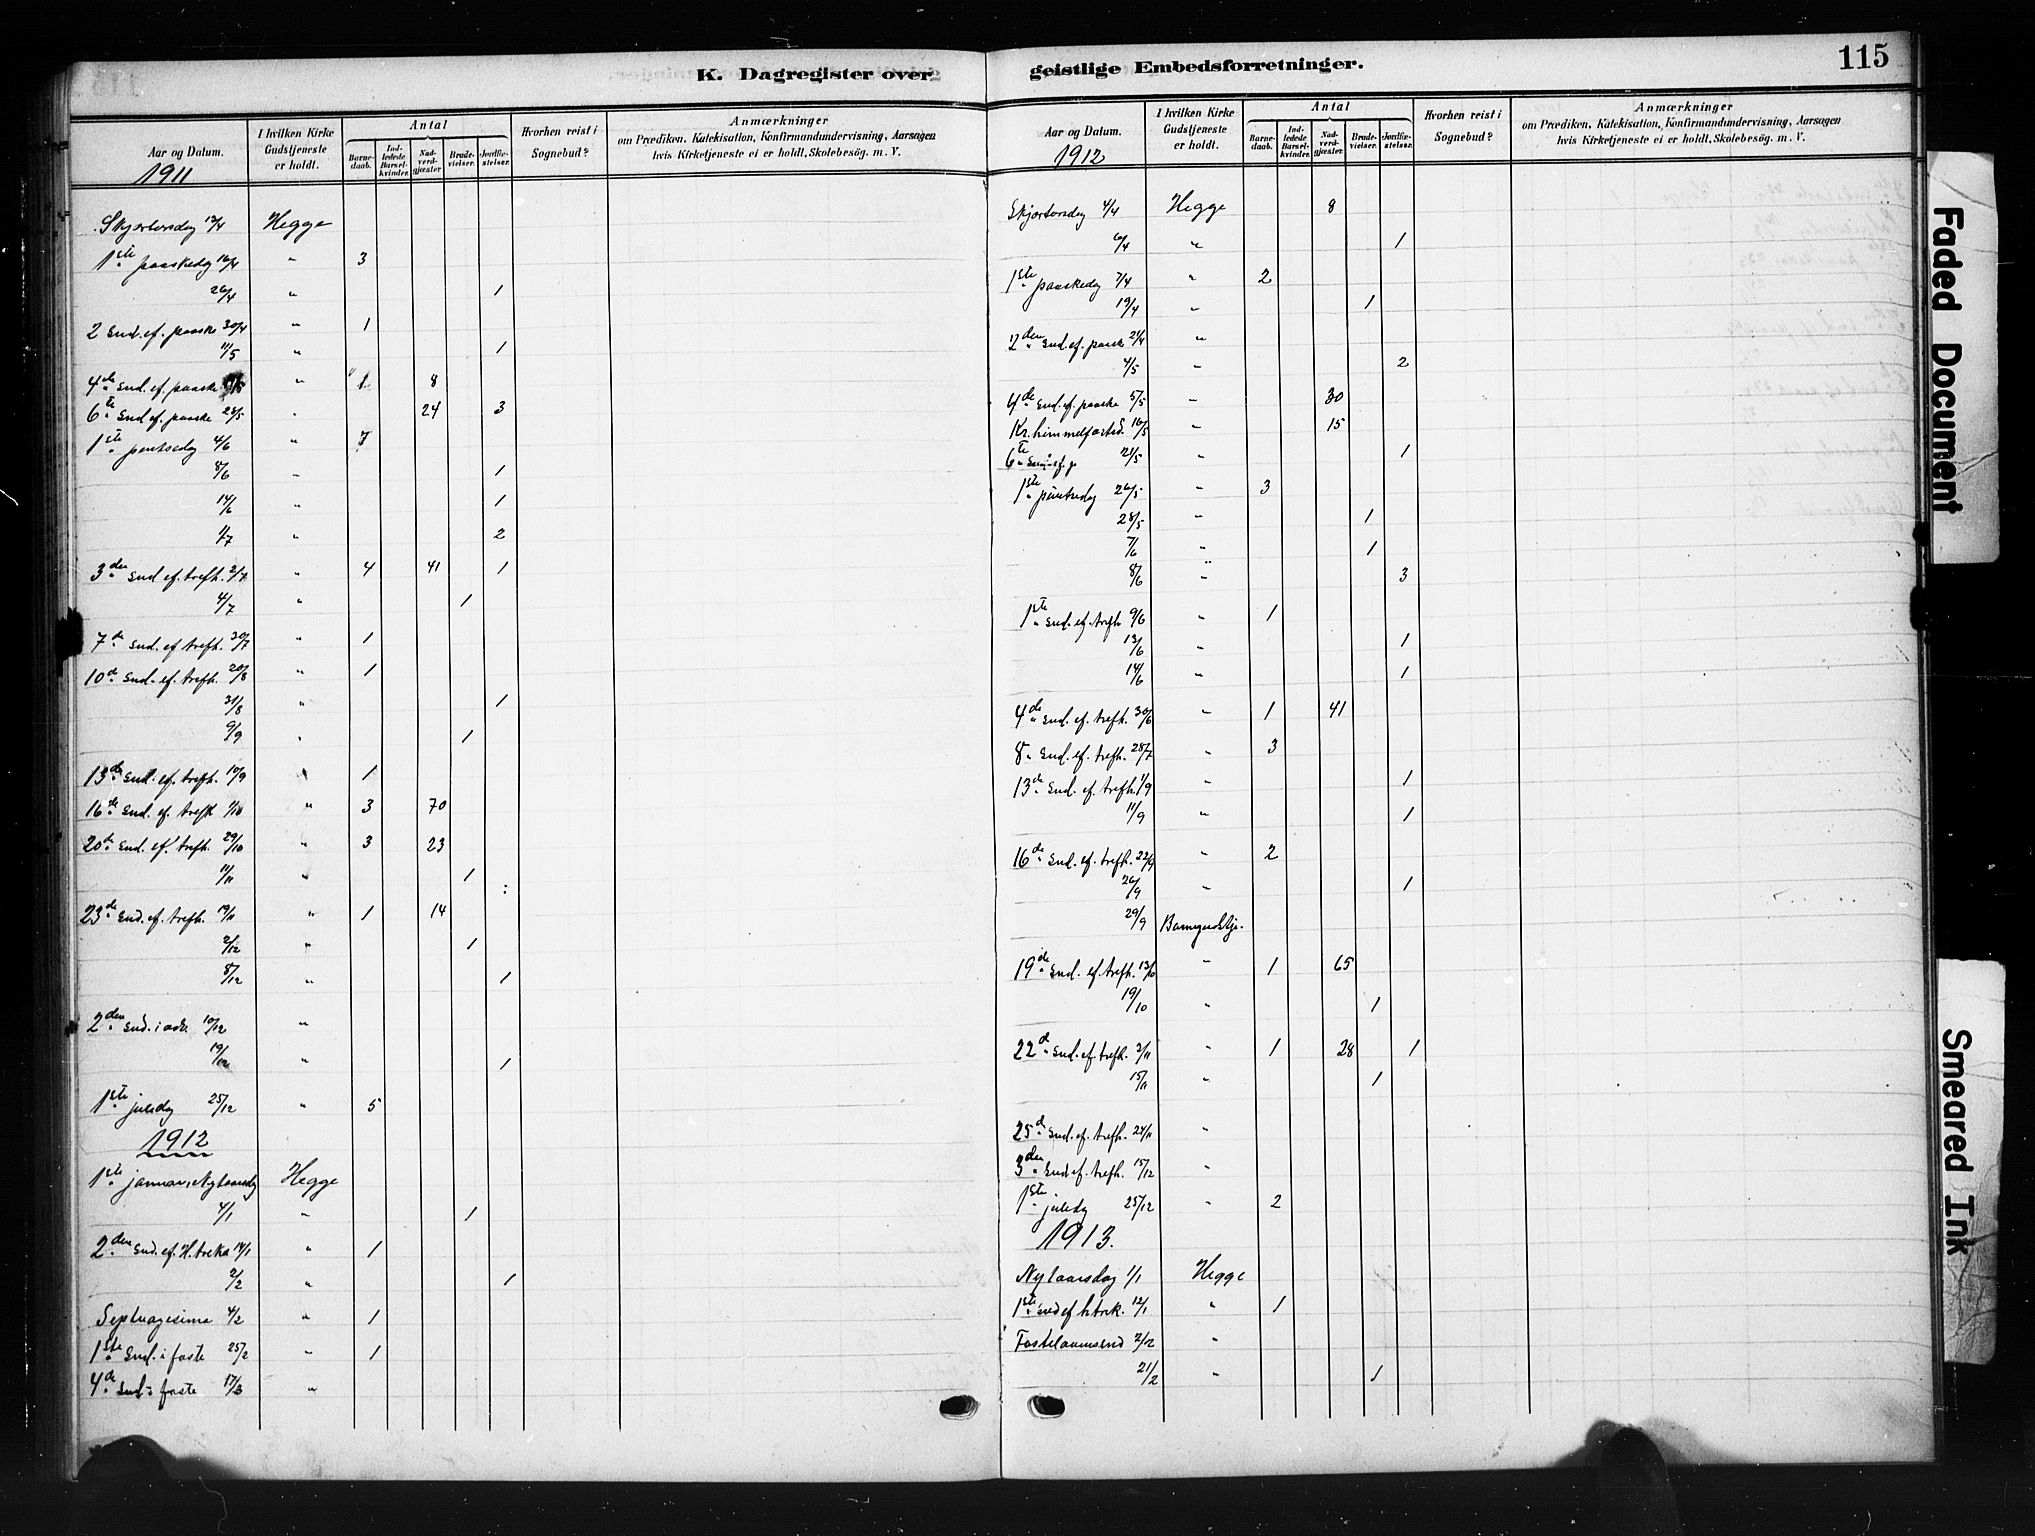 K. Dagregister over geistlige Embedsforretninger.
115
Aar og Datum.
1911
I hvilken Kirke Gudstjeneste er holdt.
Antal
Barnedaab.
Indledede Barselkvinder.
Nadverdgjæster
Brudevielser.
Jordfæstelser.
Hvorhen reist i Sognebud?
Anmærkninger
om Prædiken, Katekisation, Konfirmandundervisning, Aarsagen hvis Kirketjeneste ei er holdt, Skolebesøg. m. V.
Skjærtorsdag 13/4 Hegge
1ste paaskedag 16/4 " 3
26/4 " 1
2 Snd. ef. paaske 30/4 " 1
11/5 " 1
4de Snd. ef. paaske " 1 8
6te Snd. ef. paaske 28/5 " 24 3
1ste pintsedag 4/6 " 7
8/6 " 1
14/6 " 1
1/7 " 2
3den Snd ef. trefh. 2/7 " 4 41 1
4/7 " 1
7de Snd. ef trefh. 30/7 " 1
10de Snd. ef. trefh. 20/8 " 1
31/8 " 1
9/9 " 1
13de Snd. ef. trefh. 10/9 " 1
16de Snd. ef. trefh 1/10 " 3 70
20de Snd. ef. trefh. 29/10 " 3 23
11/11 " 1
23de Snd. ef. trefh. 19/11 " 1 14
2/12 " 1
8/12 " 1
2den Snd. i adv. 10/12 "
19/12 " 1
1ste juledag 25/12 " 5
1912
1ste januar, Nytaarsdag Hegge
4/1 " 1
2den Snd. ef. H. trek. 14/1 " 1
2/2 " 1
Septuagesima 4/2 " 1
1ste Snd. i faste 25/2 " 1
4de Snd i faste 17/3 "
Aar og Datum.
1912
I hvilken Kirke Gudstjeneste er holdt.
Antal
Barnedaab.
Indledede Barselkvinder.
Nadverdgjæster.
Brudevielser.
Jordfæstelser.
Hvorhen reist i Sognebud?
Anmærkninger
om Prædiken, Katekisation, Konfirmandundervisning, Aarsagen hvis Kirketjeneste ei er holdt, Skolebesøg. m. V.
Skjærtorsdag 4/4 Hegge 8
6/4 " 1
1ste paaskedag 7/4 " 2
19/4 " 1
2den Snd. ef. paask 21/4 "
4/5 " 2
4de Snd. ef. paaske 5/5 " 30
Kr. himmelfartsd. 16/5 " 15
6te 21/5 " 1
1ste pintsedag 26/5 " 3
28/5 " 1
7/6 " 1
8/6 " 3
1ste Snd. ef. trefh 9/6 " 1
13/6 " 1
14/6 " 1
4de Snd. ef. trefh. 30/6 " 1 41
8" Snd. ef. trefh. 28/7 " 3
13de Snd. ef. trefh. 1/9 " 1
11/9 " 1
16de Snd. ef. trefh. 22/9 " 2
26/9 " 1
29/9 Barnegudstje.
19de Snd. ef. trefh. 13/10 " 1 65
19/10 " 1
22d Snd. ef. trefh. 2/11 " 1 28 1
15/11 " 1
25d Snd. ef. trefh. 24/11 "
3den Snd ef. trefh. 15/12 "
1ste juledag 25/12 " 2
1913.
Nytaarsdag 1/1 Hegge
1ste snd ef h trek. 12/1 " 1
Fastelaavnssnd 2/2 "
21/2 " 1
Faded Document
Smeared Ink